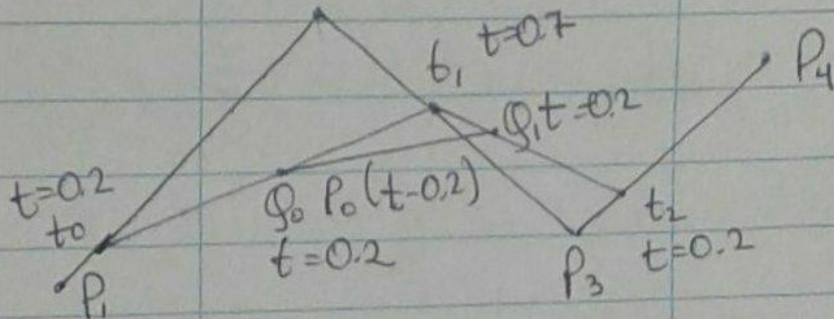 t=0.7
t₁
P₄
Q₁ t=0.2
t=0.2
t₀
Q₀ P₀(t-0.2)
t=0.2
t₂
t=0.2
P₃
P₁